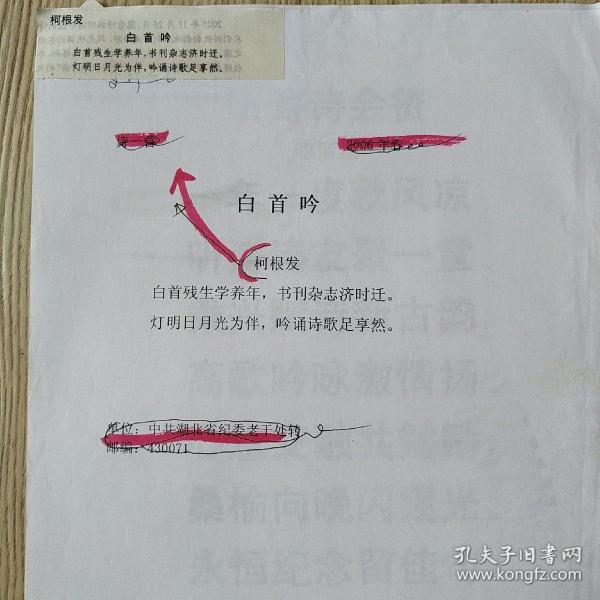 柯根发
白首吟
白首残生学养年，书刊杂志济时迁。
灯明日月光为伴，吟诵诗歌足享然。
诗一首
2006年春
白首吟
柯根发
白首残生学养年，书刊杂志济时迁。
灯明日月光为伴，吟诵诗歌足享然。
单位：中共湖北省纪委老干处转
邮编：430071
高歌吟咏激情扬
桑榆向晚闪晨光
孔夫子旧书网
www.kongfz.com